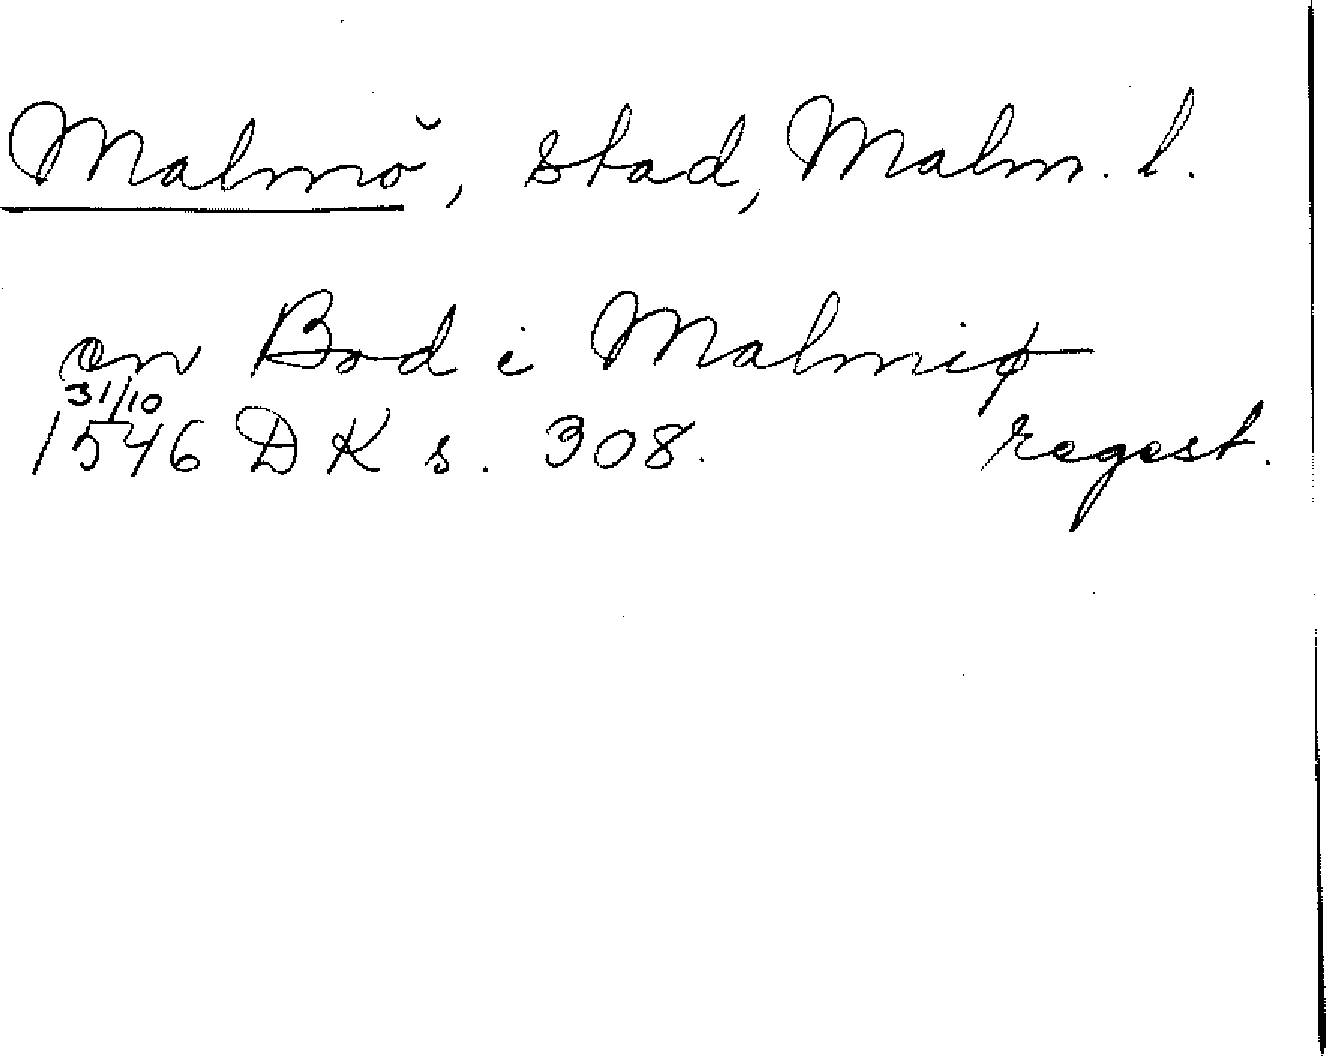 Malmö, stad, Malm. l.
en Bod i Malmiø
31/10
1546 DK s. 308. regest.